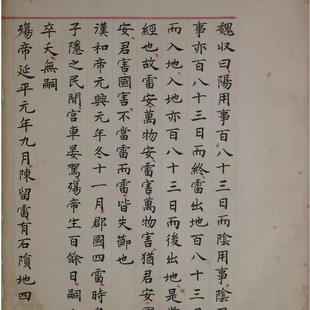 魏收曰陽用事百八十三日而陰用事陰
事亦百八十三日而終雷出地百八十三日
而入地入地亦百八十三日而後出地是
經也故雷安萬物安雷害萬物害猶君安
安君害國害不當雷而雷皆失節也
漢和帝元興元年冬十一月郡國四雷時
子隱之民間宮車晏駕殤帝生百餘日嗣
卒夭無嗣
殤帝延平元年九月陳留雷有石隕地四